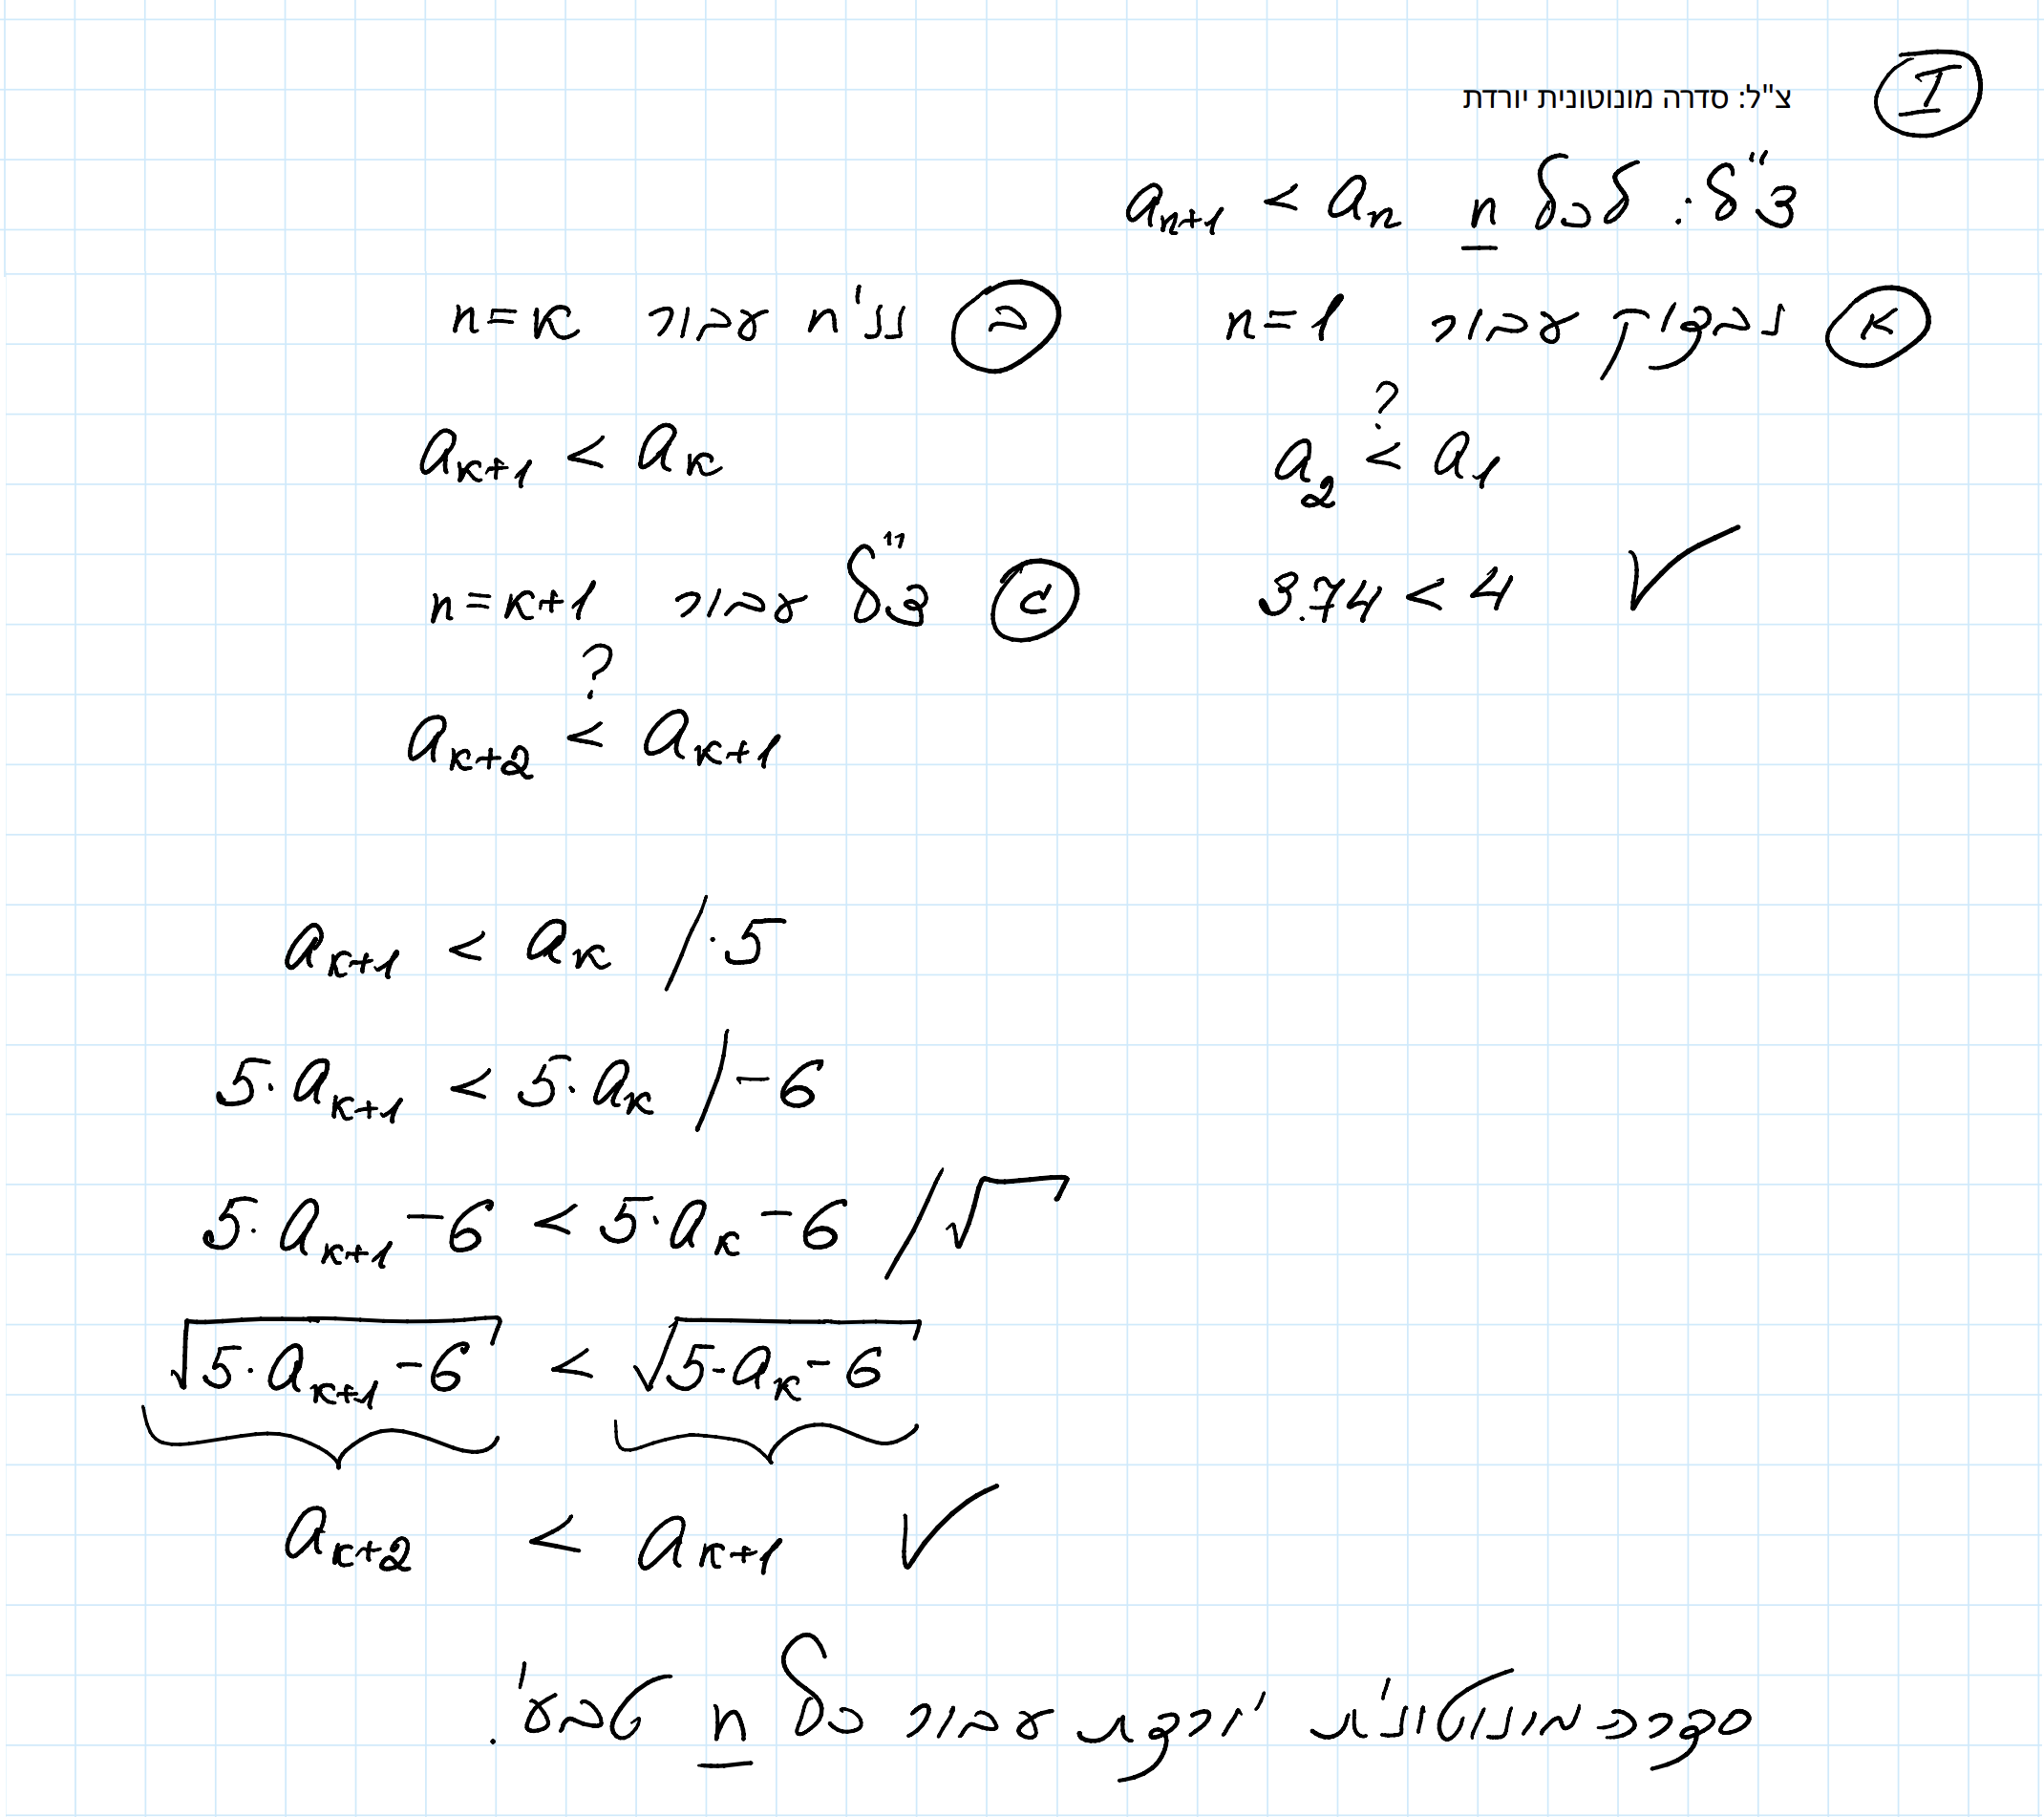 I
צ"ל: סדרה מונוטונית יורדת
צ"ל: לכל n a_{n+1} < a_n
א נבדוק עבור n=1
a_2 <? a_1
3.74 < 4 ✓
ב נניח עבור n=k
a_{k+1} < a_k
ג צ"ל עבור n=k+1
a_{k+2} <? a_{k+1}
a_{k+1} < a_k /·5
5·a_{k+1} < 5·a_k /-6
5·a_{k+1} -6 < 5·a_k -6 /√
√(5·a_{k+1} -6) < √(5·a_k -6)
a_{k+2} < a_{k+1} ✓
סדרה מונוטונית יורדת עבור כל n טבעי.